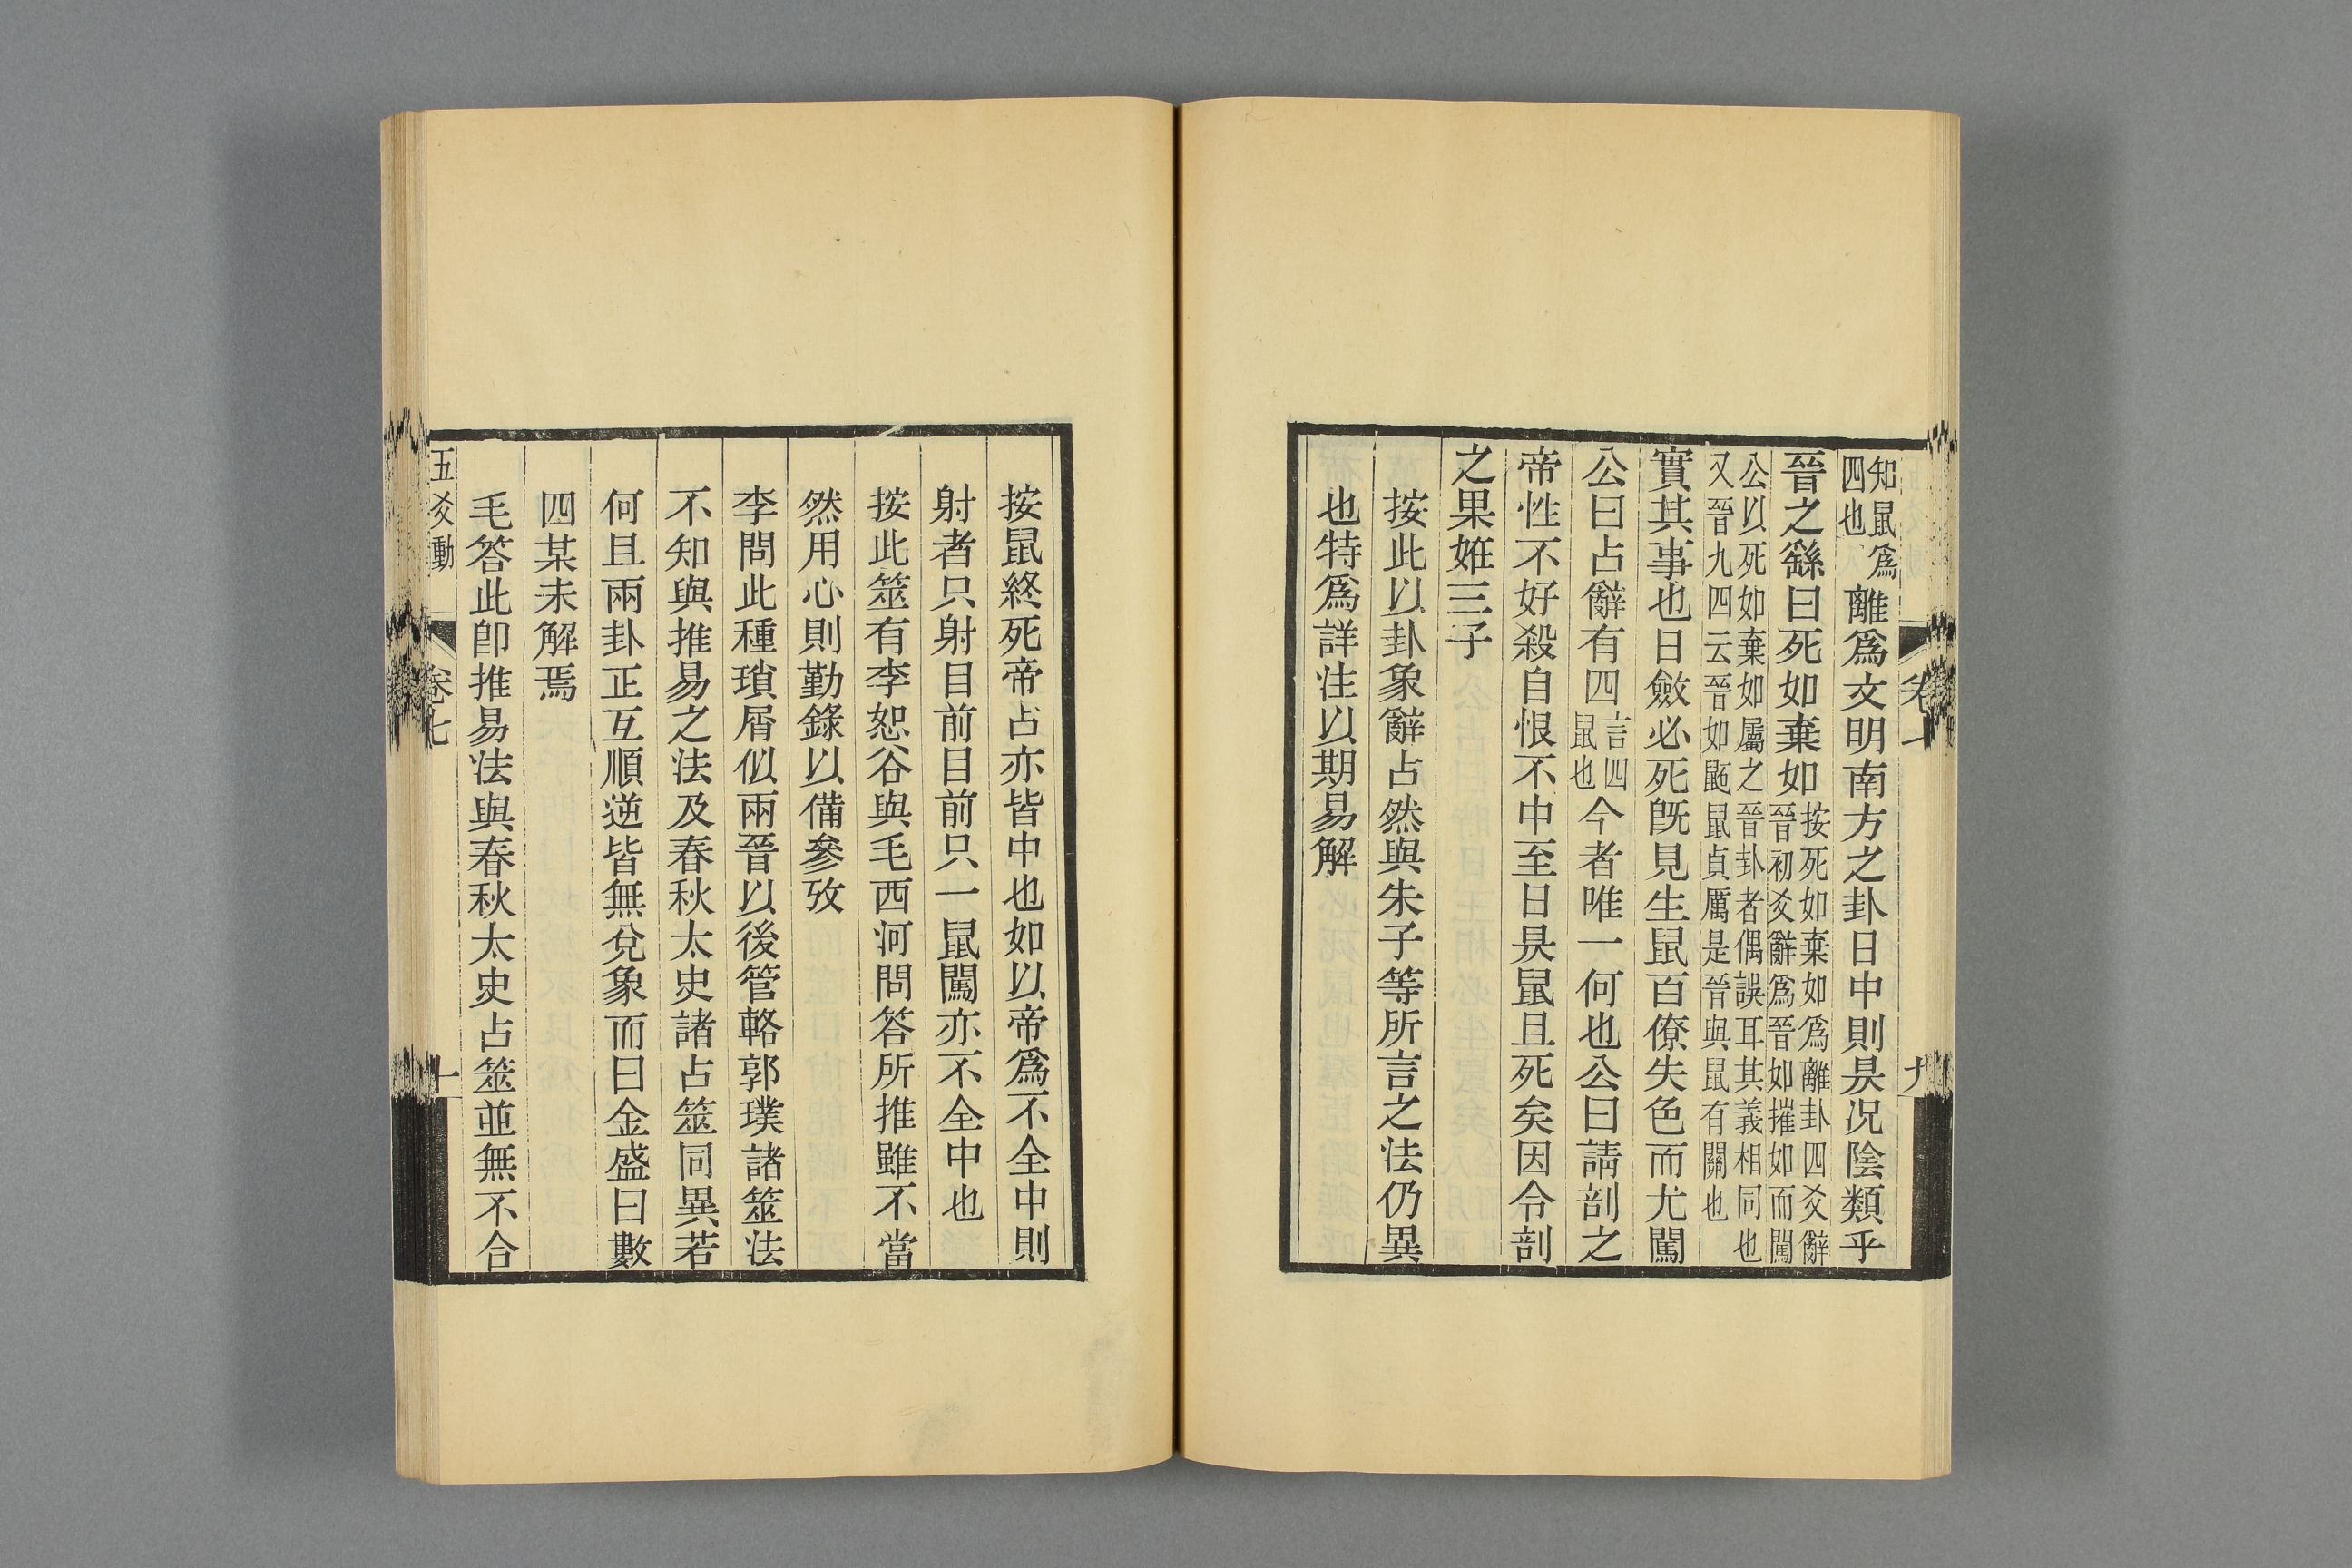 知鼠爲
四也
離爲文明南方之卦日中則昃况陰類乎
晉之繇曰死如棄如
按死如棄如爲離卦四爻辭
晉初爻辭爲晉如摧如而闖
公以死如棄如屬之晉卦者偶誤耳其義相同也
又晉九四云晉如鼫鼠貞厲是晉與鼠有關也
實其事也日斂必死旣見生鼠百僚失色而尤闖
公曰占辭有四
言四
鼠也
今者唯一何也公曰請剖之
帝性不好殺自恨不中至日昃鼠且死矣因令剖
之果姙三子
按此以卦象辭占然與朱子等所言之法仍異
也特爲詳注以期易解
卷七
九
按鼠終死帝占亦皆中也如以帝爲不全中則
射者只射目前目前只一鼠闖亦不全中也
按此筮有李恕谷與毛西河問答所推雖不當
然用心則勤錄以備參攷
李問此種瑣屑似兩晉以後管輅郭璞諸筮法
不知與推易之法及春秋太史諸占筮同異若
何且兩卦正互順逆皆無兌象而曰金盛曰數
四某未解焉
毛答此卽推易法與春秋太史占筮並無不合
五爻動
卷七
十